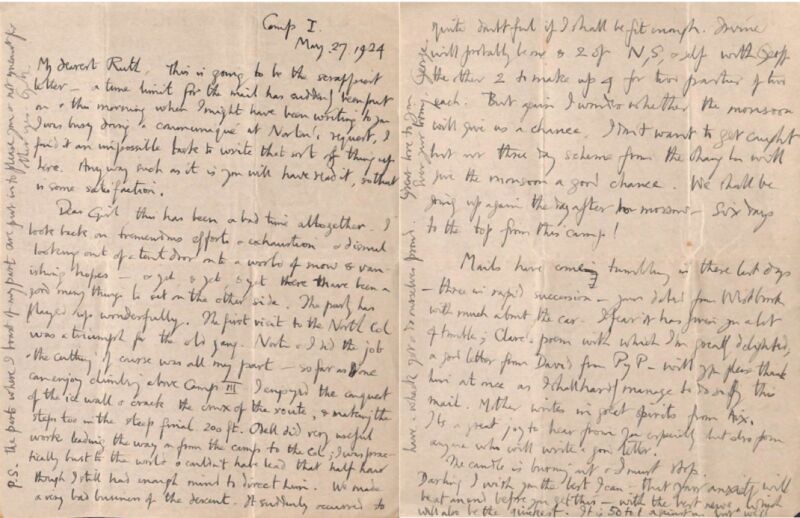 Camp I.
May. 27. 1924
My dearest Ruth, This is going to be the scrappiest
letter – a time limit for the mail has suddenly been put
on & this morning when I might have been writing to you
I was busy doing a communiqué at Norton's request, I
find it an impossible task to write that sort of thing up
here. Anyway such as it is you will have read it, so that
is some satisfaction.
Dear Girl this has been a bad time altogether. I
look back on tremendous efforts & exhaustion & dismal
looking out of a tent door onto a world of snow & van-
ishing hopes – & yet, & yet, & yet there have been a
good many things to set on the other side. The party has
played up wonderfully. The first visit to the North Col
was a triumph for the old gang. Norton & I did the job
& the cutting of course was all my part – so far as one
can enjoy climbing above Camp III I enjoyed the conquest
of the ice wall & crack the crux of the route, & making the
steps too in the steep final 200 ft. Odell did very useful
work leading the way on from the camp to the Col; I was prac-
tically bust to the world & couldn't have lead that half hour
though I still had enough mind to direct him. We made
a very bad business of the descent. It suddenly occurred to
P.S. The parts where I boast of my part are put in to please you & not meant for
other eyes G.M.
quite doubtful if I shall be fit enough. Irvine
will probably be one & 2 of N, S, & self with Geoff
the other 2 to make up 4 for two parties of two
each. But again I wonder whether the monsoon
will give us a chance. I don't want to get caught
but our three day scheme from the Chang La will
give the monsoon a good chance. We shall be
going up again the day after tomorrow – Six days
to the top from this camp!
Mails have coming tumbling in these last days
– three in rapid succession – your dated from Westbrook
with much about the car. I fear it has given you a lot
of trouble; Clare's poem with which I'm greatly delighted,
a good letter from David from PyP – will you please thank
him at once as I shall hardly manage to do so by this
mail. Mother writes in great spirits from Aix.
It's a great joy to hear from you especially but also from
anyone who will write a good letter.
The candle is burning out & I must stop.
Darling I wish you the best I can – that your anxiety will
be at an end before you get this – with the best news. Which
will also be the quickest. It is 50 to 1 against us but we'll
have a whack yet & do ourselves proud. Great love to you.
Ever your loving, George